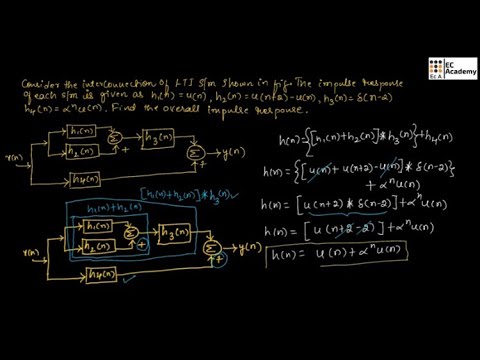 EC
Academy
ECA
Consider the interconnection of LTI s/m shown in fig. The impulse response
of each s/m is given as h₁(n) = u(n), h₂(n) = u(n+2) - u(n), h₃(n) = δ(n-2)
h₄(n) = αⁿu(n). Find the overall impulse response.
h₁(n)
h₂(n)
Σ
+
h₃(n)
x(n)
Σ
y(n)
+
h₄(n)
[h₁(n)+h₂(n)]*h₃(n) ✓
h₁(n)+h₂(n)
h₁(n)
h₂(n)
Σ
+
h₃(n)
x(n)
Σ
y(n)
+
h₄(n)
✓
h(n) = {[h₁(n)+h₂(n)]*h₃(n)}+h₄(n)
h(n) = {[u(n)+u(n+2)-u(n)]*δ(n-2)}
+ αⁿu(n)
h(n) = [u(n+2)*δ(n-2)]+αⁿu(n)
h(n) = [u(n+2-2)]+αⁿu(n)
h(n) = u(n)+αⁿu(n)